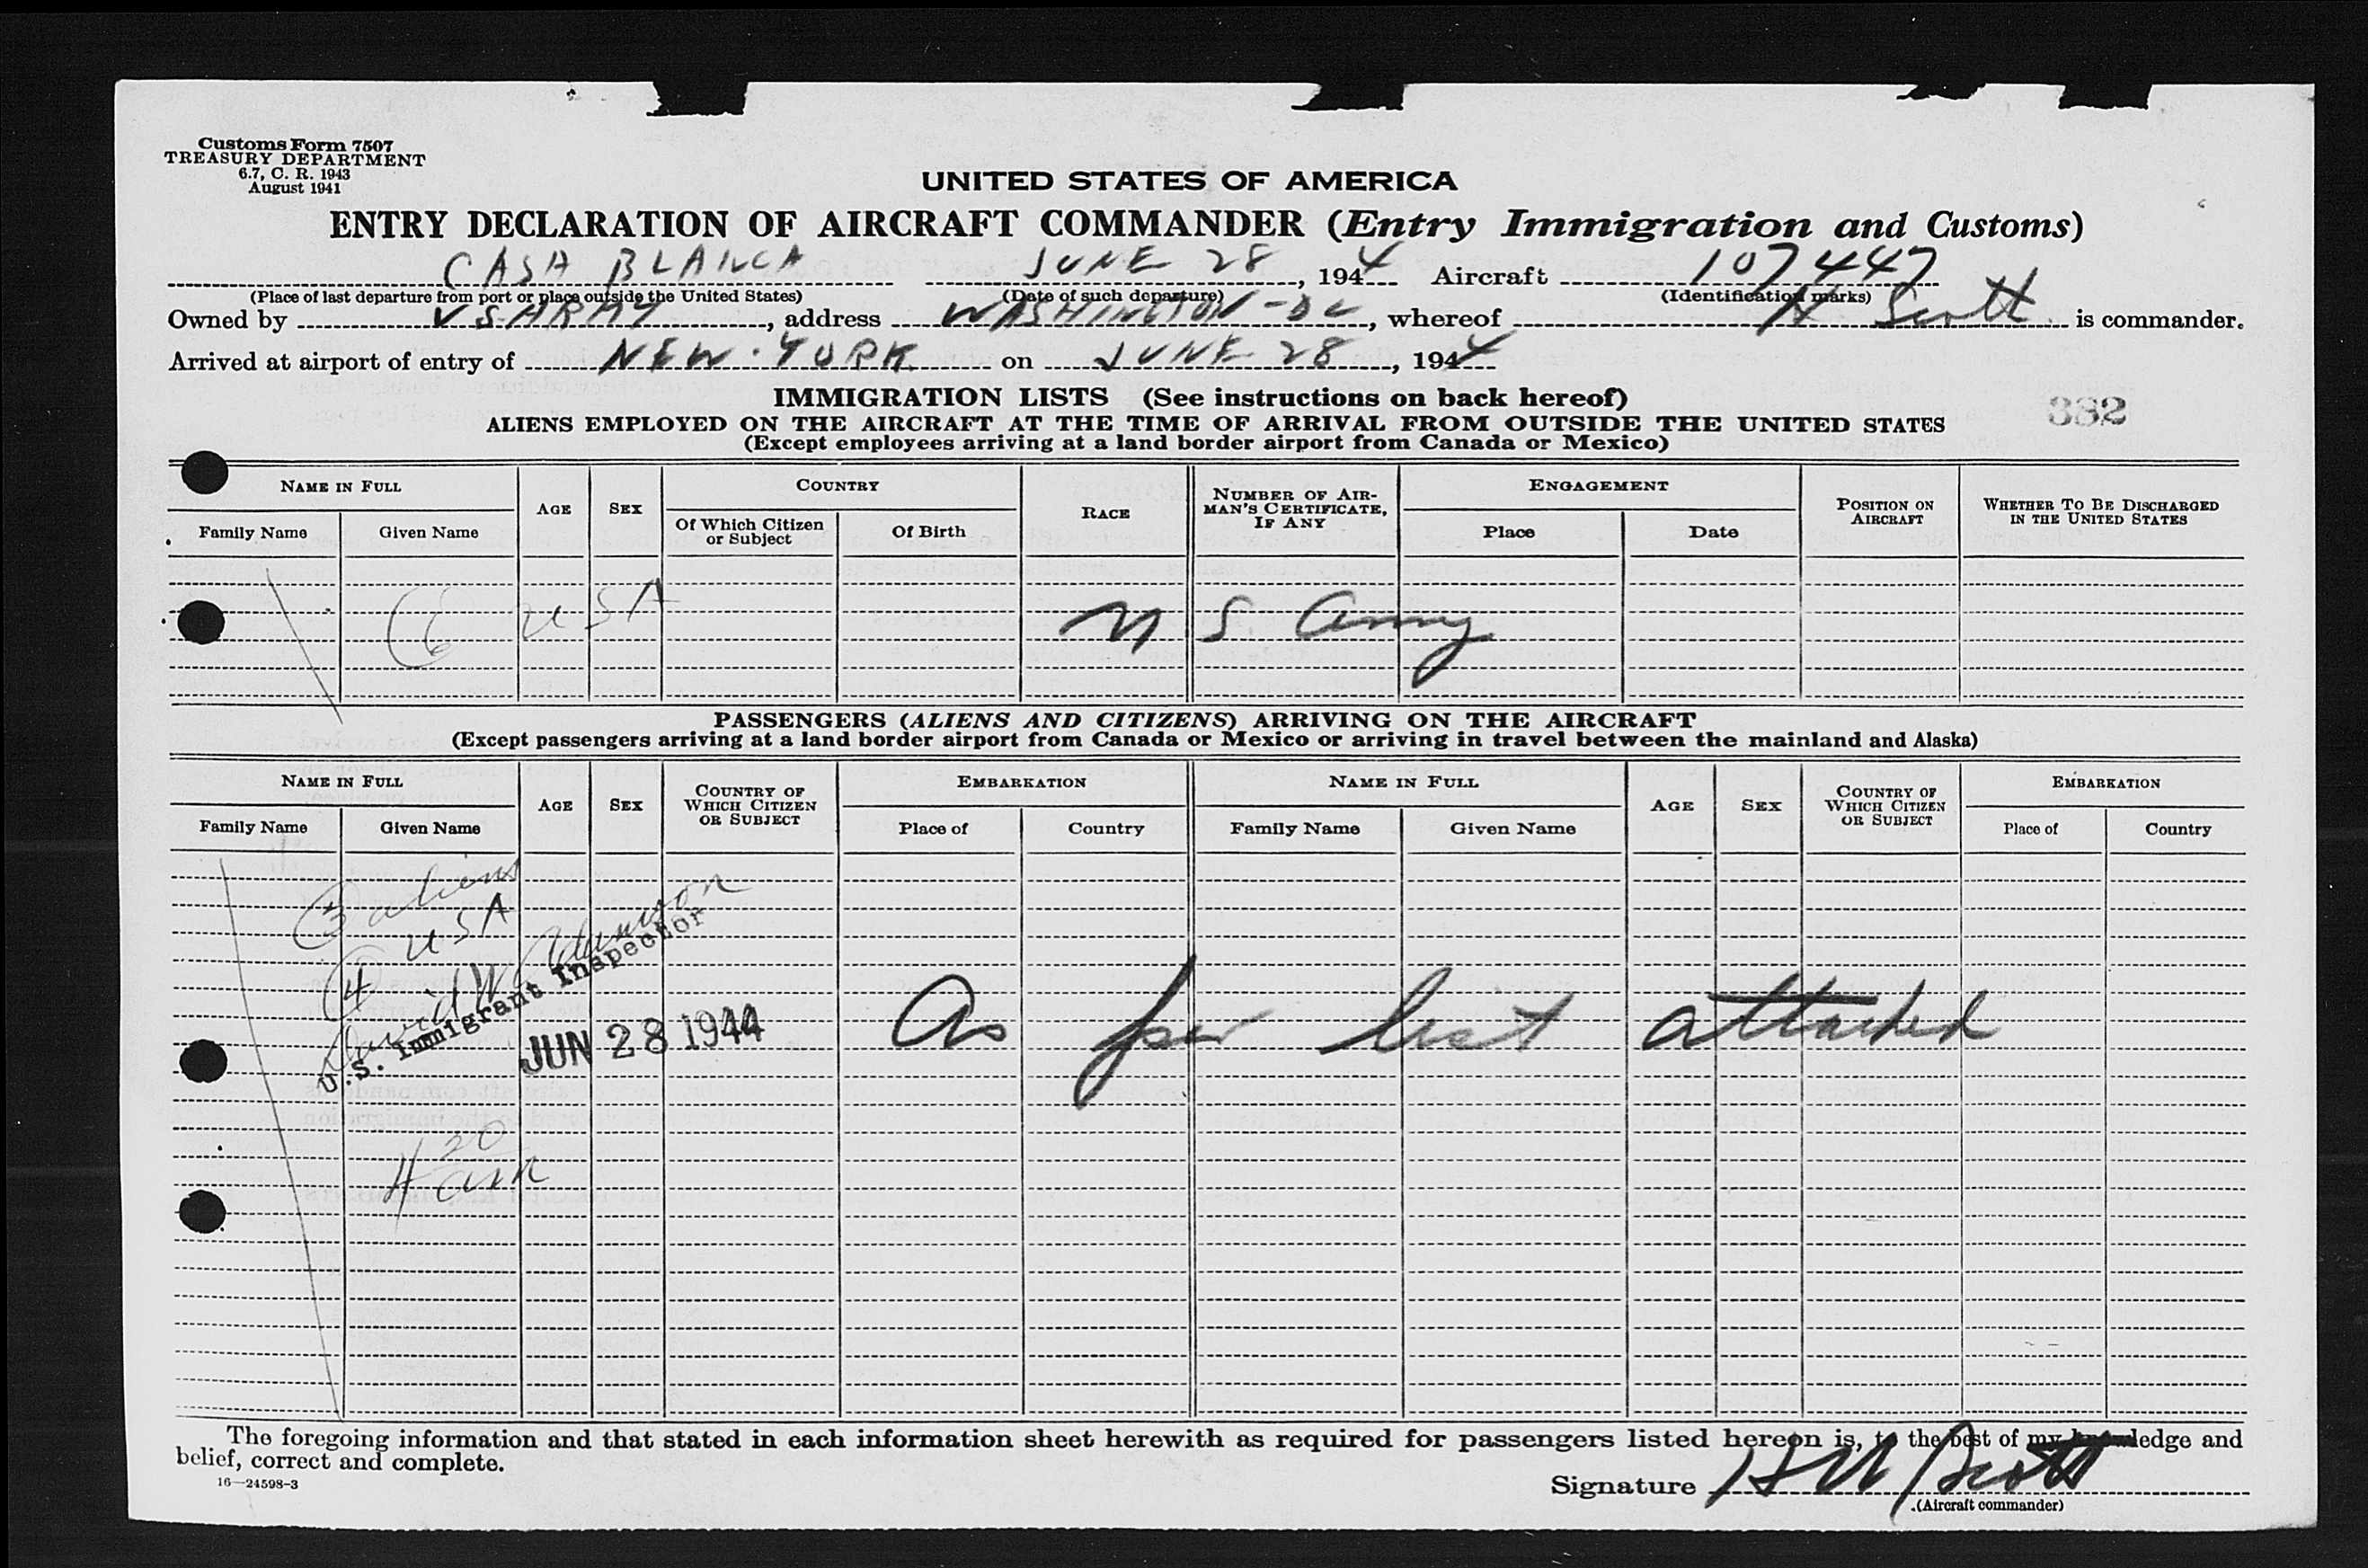 Customs Form 7507
TREASURY DEPARTMENT
6.7, C. R. 1943
August 1941
UNITED STATES OF AMERICA
ENTRY DECLARATION OF AIRCRAFT COMMANDER (Entry Immigration and Customs)
CASA BLANCA JUNE 28, 1944 Aircraft 107447
(Place of last departure from port or place outside the United States) (Date of such departure) (Identification marks)
Owned by US ARMY, address WASHINGTON-DC, whereof H Scott is commander.
Arrived at airport of entry of NEW YORK on JUNE 28, 1944
IMMIGRATION LISTS (See instructions on back hereof)
382
ALIENS EMPLOYED ON THE AIRCRAFT AT THE TIME OF ARRIVAL FROM OUTSIDE THE UNITED STATES
(Except employees arriving at a land border airport from Canada or Mexico)
NAME IN FULL AGE SEX COUNTRY RACE NUMBER OF AIRMAN'S CERTIFICATE, IF ANY ENGAGEMENT POSITION ON AIRCRAFT WHETHER TO BE DISCHARGED IN THE UNITED STATES
Family Name Given Name Of Which Citizen or Subject Of Birth Place Date
6 USA U S Army
PASSENGERS (ALIENS AND CITIZENS) ARRIVING ON THE AIRCRAFT
(Except passengers arriving at a land border airport from Canada or Mexico or arriving in travel between the mainland and Alaska)
NAME IN FULL AGE SEX COUNTRY OF WHICH CITIZEN OR SUBJECT EMBARKATION NAME IN FULL AGE SEX COUNTRY OF WHICH CITIZEN OR SUBJECT EMBARKATION
Family Name Given Name Place of Country Family Name Given Name Place of Country
3 aliens
4 USA
David W
U.S. Immigrant Inspector
JUN 28 1944
As per list attached
The foregoing information and that stated in each information sheet herewith as required for passengers listed hereon is, to the best of my knowledge and
belief, correct and complete.
16—24598-3
Signature H Scott
(Aircraft commander)